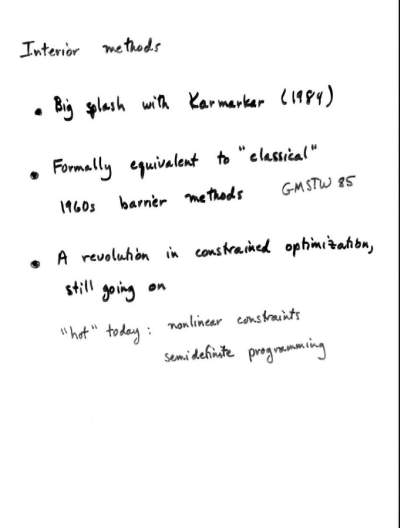 Interior methods
• Big splash with Karmarkar (1984)
• Formally equivalent to "classical"
1960s barrier methods GMSTW 85
• A revolution in constrained optimization,
still going on
"hot" today: nonlinear constraints
semidefinite programming